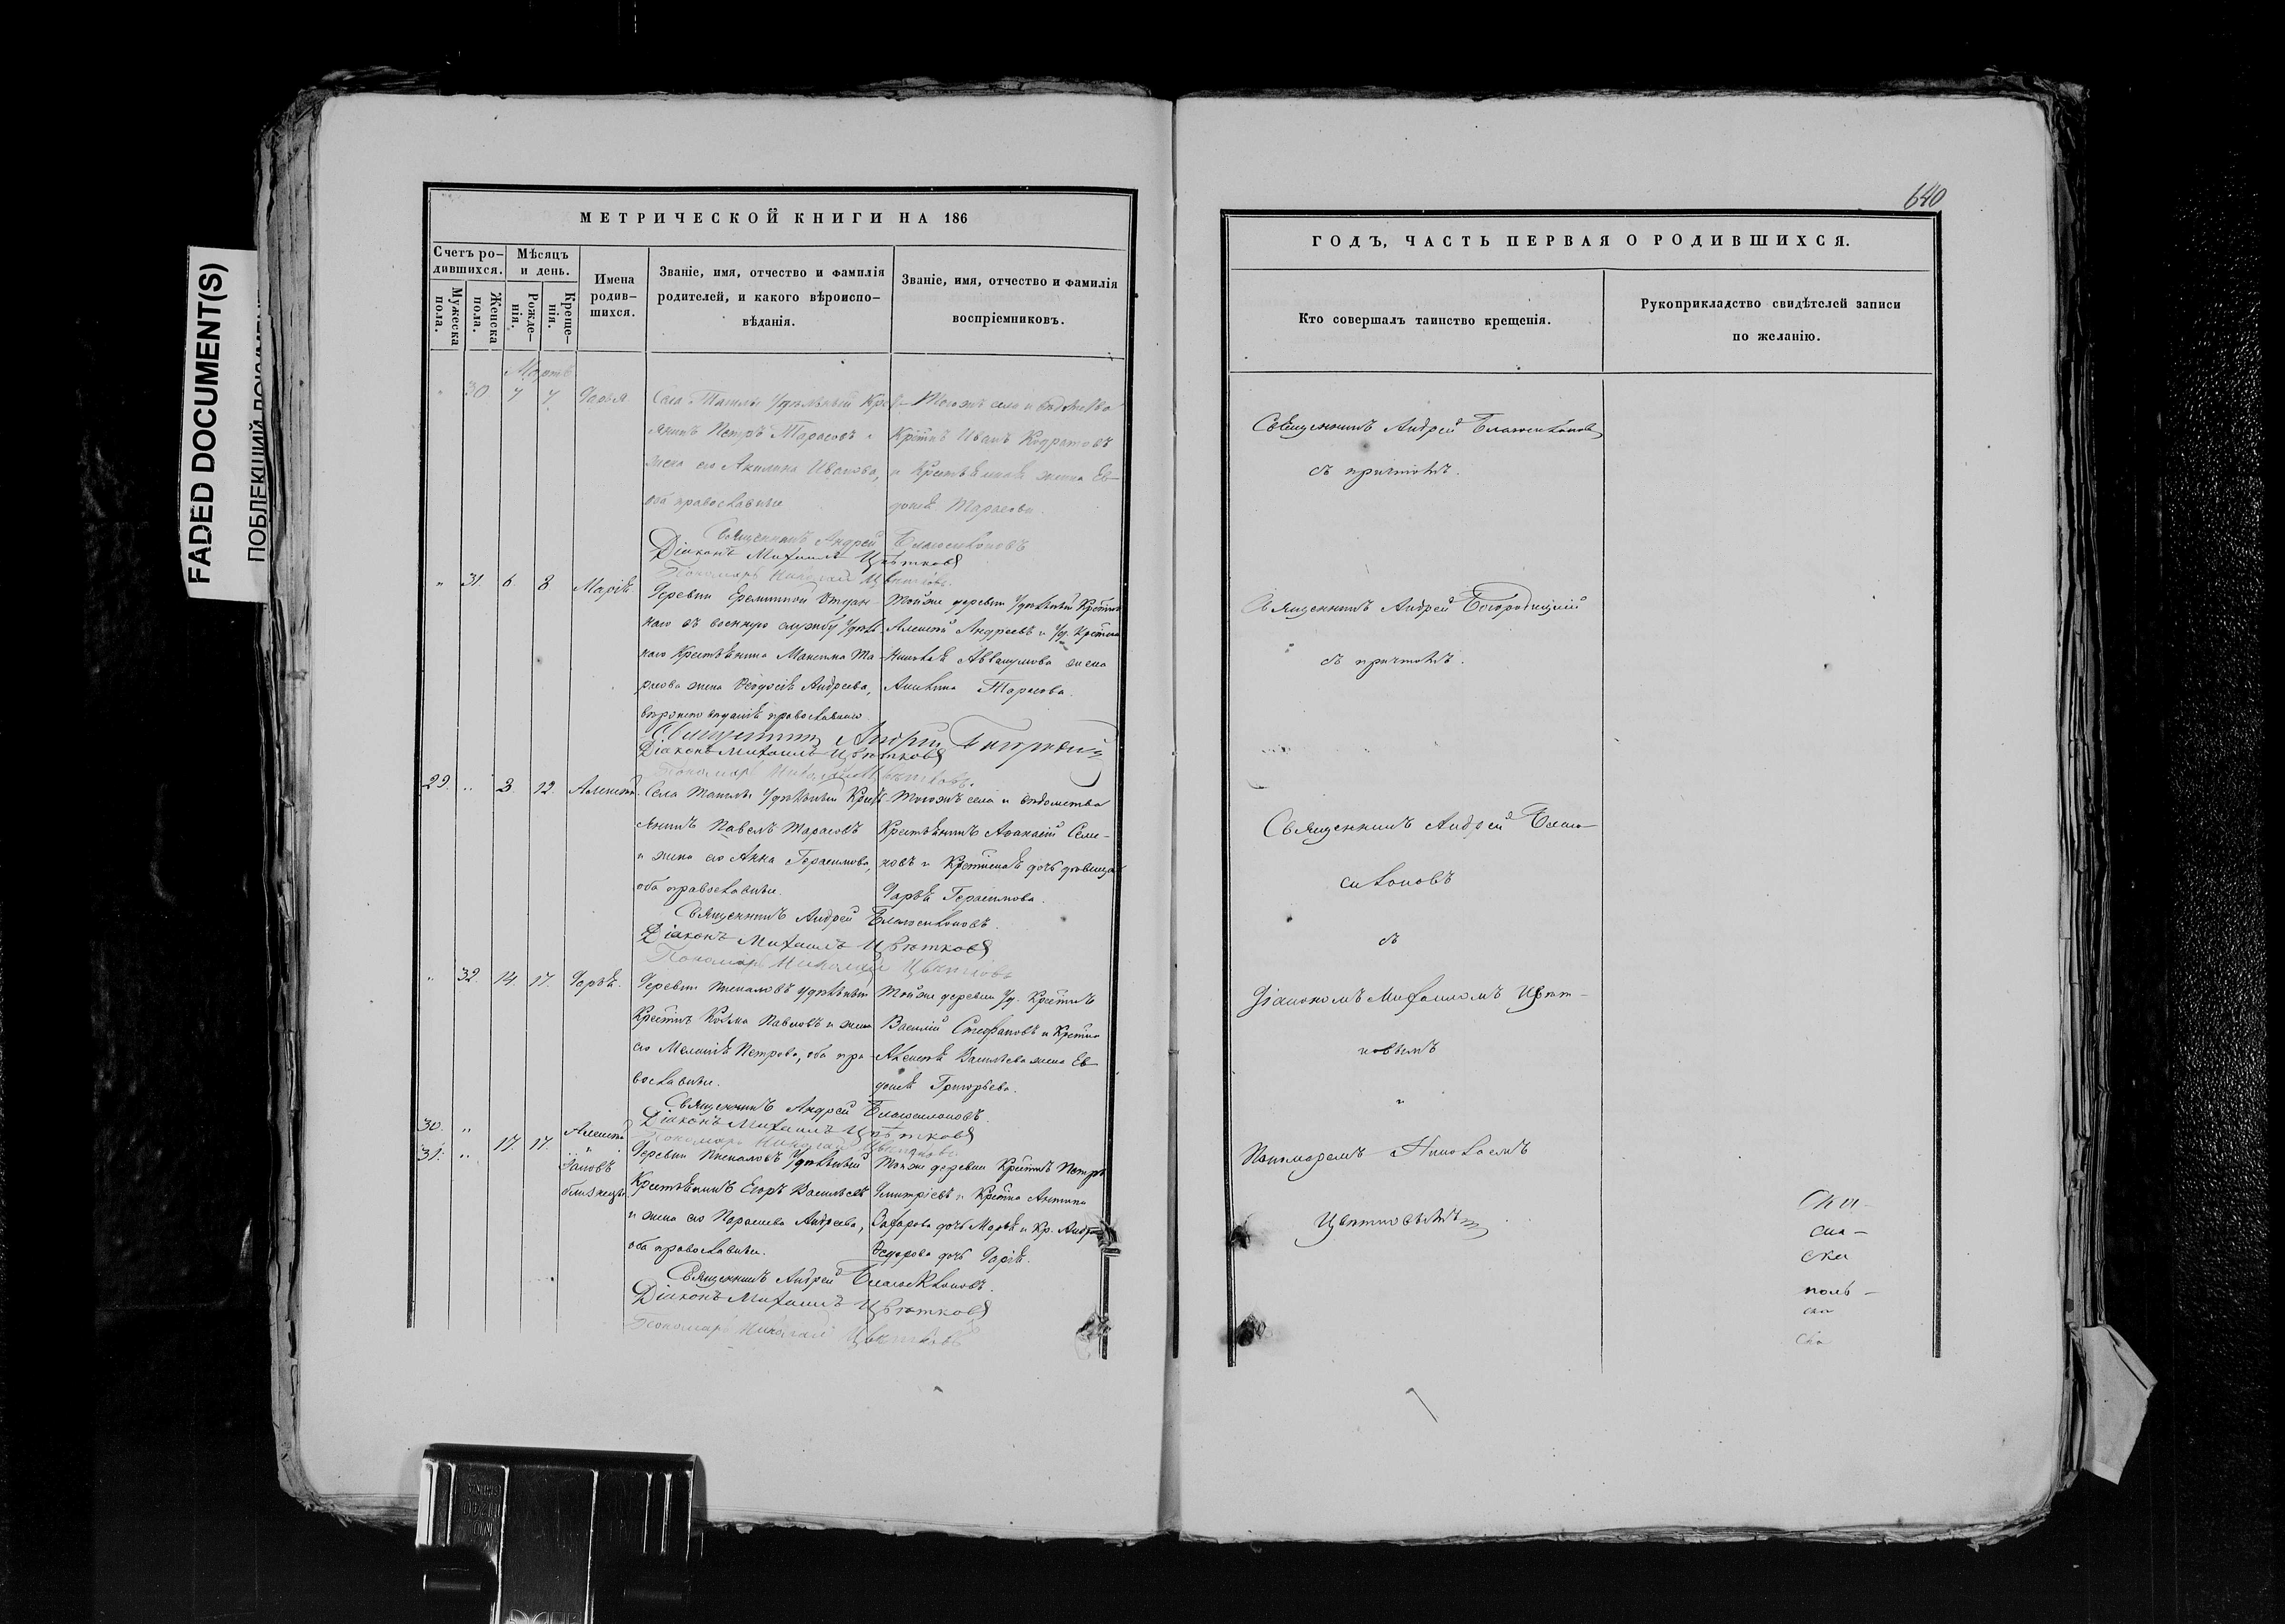 FADED DOCUMENT(S)
ПОБЛЕКШИЙ
МЕТРИЧЕСКОЙ КНИГИ НА 186
Счетъ ро-
дившихся.
Мужеска
пола.
Женска
пола.
Мѣсяцъ
и день.
Рожде-
нія.
Креще-
нія.
Имена
родив-
шихся.
Званіе, имя, отчество и фамилія
родителей, и какого вѣроиспо-
вѣданія.
Званіе, имя, отчество и фамилія
воспріемниковъ.
Мартъ
30 7 7 Дарья
Села Ташлы Удѣльный Крес-
янинъ Петръ Тарасовъ и
жена его Акилина Иванова,
оба православные
Тогожъ села и вѣдомства
Крестнъ Иванъ Кодратовъ
и Крестьянка жена Ев-
докія Тарасова.
Священникъ Андрей Благосклоновъ
Діаконъ Михаилъ Цвѣтковъ
Пономарь Николай Цвѣтковъ.
" 31. 6. 8 Марія.
Деревни Отдан-
наго въ военную службу Удѣль
наго Крестьянина Максима Та-
расова жена Ѳеодосія Андреева,
вѣроисповѣданія православнаго.
Тойже деревни Удѣльный Крестнъ
Алексѣй Андреевъ и Уд. Крестна
Николая Аввакумова жена
Акилина Тарасова.
Священникъ Андрей Богородицкій
Діаконъ Михаилъ Цвѣтковъ
Пономарь Николай Цвѣтковъ.
29. " 3. 12. Алексѣй.
Села Ташлы Удѣльный Крест
янинъ Павелъ Тарасовъ
и жена его Анна Герасимова,
оба православные.
Тогожъ села и вѣдомства
Крестьянинъ Аѳанасій Семе-
новъ и дочь дѣвица
Дарья Герасимова.
Священникъ Андрей Благосклоновъ.
Діаконъ Михаилъ Цвѣтковъ
Пономарь Николай Цвѣтковъ
" 32. 14. 17. Дарья.
Деревни Удѣльный
Крестнъ Козьма Павловъ и жена
его Меланія Петрова, оба пра-
вославные.
Тойже деревни Уд. Крестнъ
Василій Стефановъ и Крестна
Алексѣя Васильева жена Ев-
докія Григорьева.
Священникъ Андрей Благосклоновъ.
Діаконъ Михаилъ Цвѣтковъ
Пономарь Николай Цвѣтковъ.
30. "
31. " 17. 17. Алексѣй
Іаковъ
близнецы
Деревни Удѣльный
Крестьянинъ Егоръ Васильевъ
и жена его Параскева Андреева,
оба православные.
Тойже деревни Крестнъ Петръ
Димитріевъ и Крестна Антипа
Захарова дочь Марья и Кр. Андр
Ѳедорова дочь Дарія.
Священникъ Андрей Благосклоновъ.
Діаконъ Михаилъ Цвѣтковъ
Пономарь Николай Цвѣтковъ
640
ГОДЪ, ЧАСТЬ ПЕРВАЯ О РОДИВШИХСЯ.
Кто совершалъ таинство крещенія.
Рукоприкладство свидѣтелей записи
по желанію.
Священникъ Андрей Благосклоновъ
съ причтомъ.
Священникъ Андрей Богородицкій
съ причтомъ.
Священникъ Андрей Благо-
склоновъ
съ
Діакономъ Михаиломъ Цвѣт-
ковымъ
и
Пономаремъ Николаемъ
Цвѣтковымъ